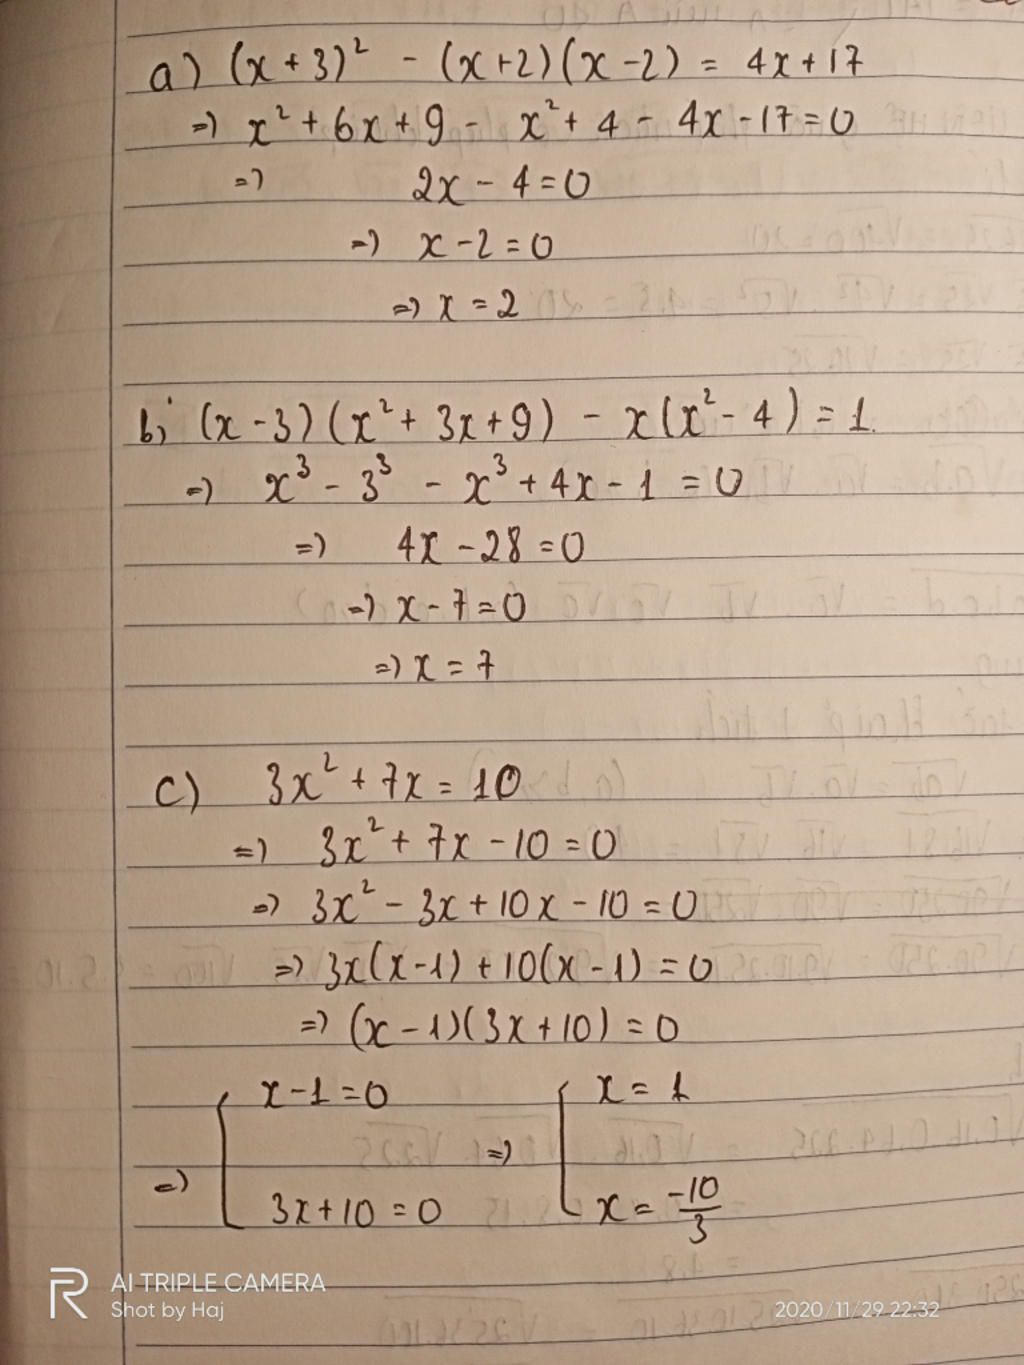 a) (x+3)² - (x+2)(x-2) = 4x+17
=) x² + 6x + 9 - x² + 4 - 4x - 17 = 0
=) 2x - 4 = 0
=) x - 2 = 0
=) x = 2
b) (x-3)(x² + 3x + 9) - x(x² - 4) = 1.
=) x³ - 3³ - x³ + 4x - 1 = 0
=) 4x - 28 = 0
=) x - 7 = 0
=) x = 7
c) 3x² + 7x = 10
=) 3x² + 7x - 10 = 0
=) 3x² - 3x + 10x - 10 = 0
=) 3x(x-1) + 10(x-1) = 0
=) (x-1)(3x+10) = 0
=) [ x-1=0 =) [ x = 1
3x+10 = 0 x = -10/3
AI TRIPLE CAMERA
Shot by Haj
2020/11/29 22:32